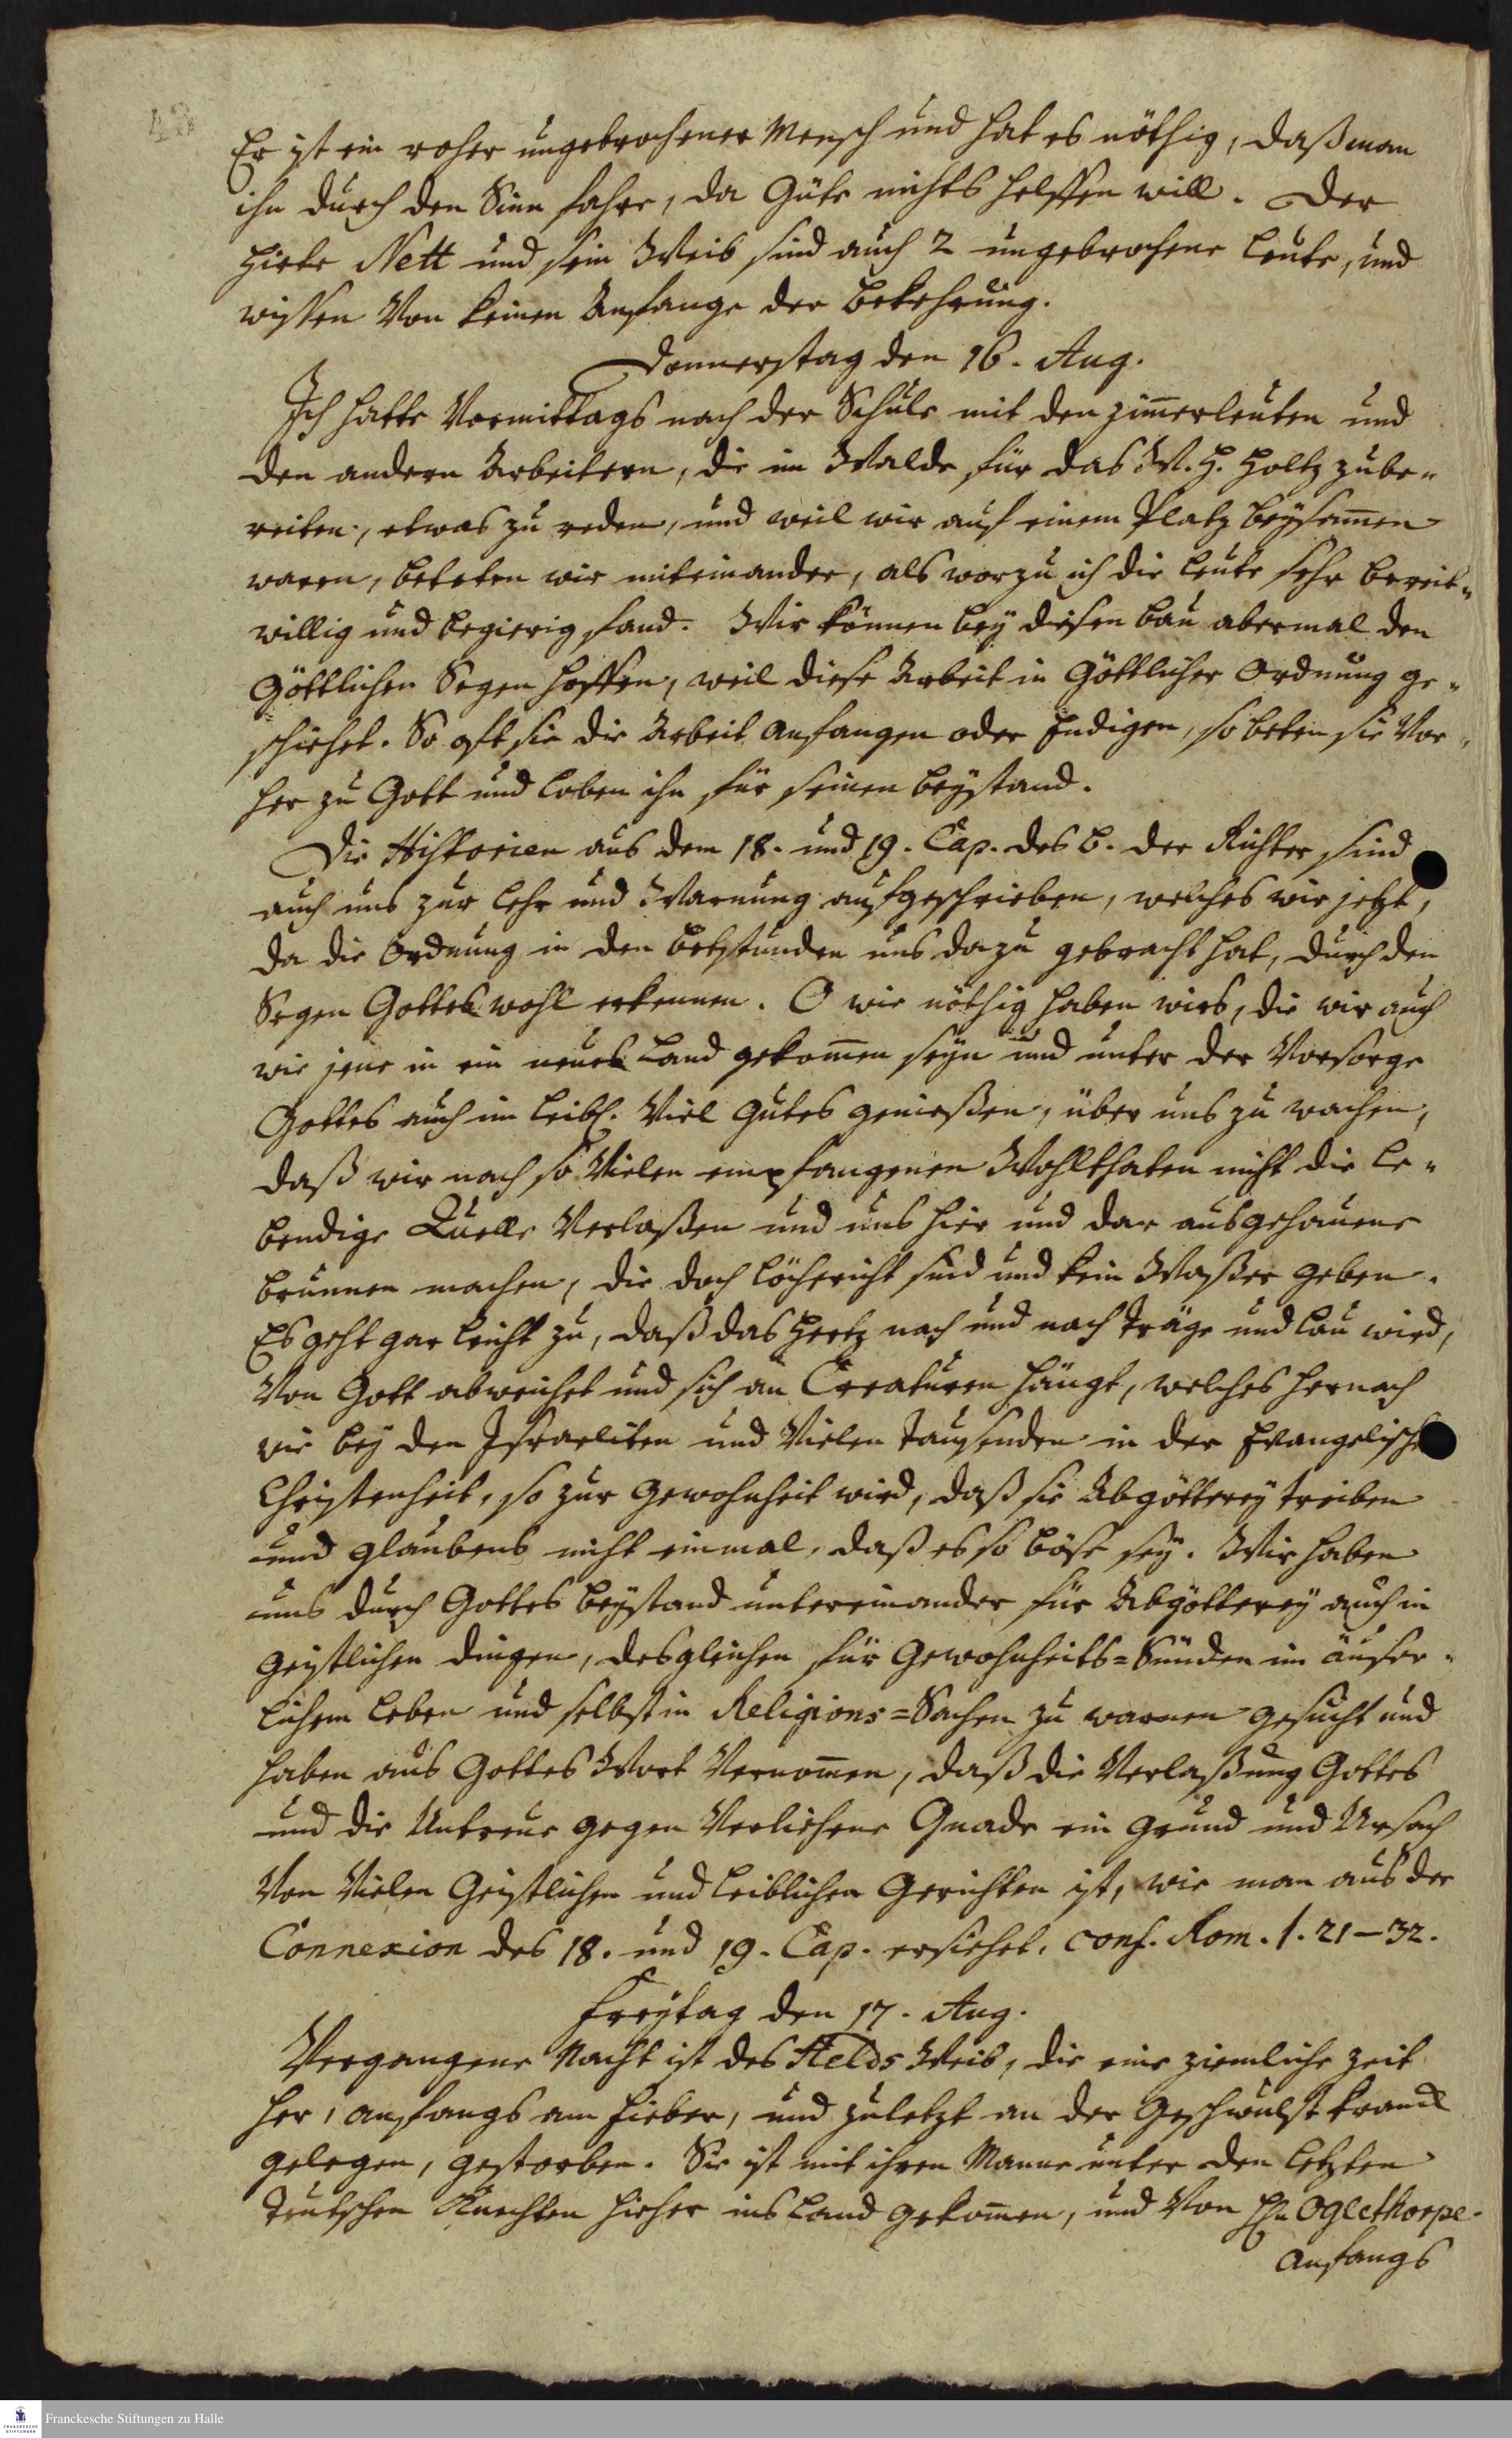 43
Er ist ein roher ungebrochener Mensch und hat es nöthig, daß man
ihn durch den Sinn fahre, da Güte nichts helffen will. Der
Hirte Nett und sein Weib sind auch 2 ungebrochene Leute, und
wissen von keinen Anfange der Bekehrung.
Donnerstag den 16. Aug.
Ich hatte Vormittags nach der Schule mit den Zim̅erleuten und
den andern Arbeitern, die im Walde für das W. H. Holtz zube-
reiten, etwas zu reden, und weil wir auf einem Platz beysam̅en
waren, beteten wir miteinander, als worzu ich die Leute sehr bereit-
willig und begierig fand. Wir können bey diesen Bau abermal den
Göttlichen Segen hoffen, weil diese Arbeit in Göttlicher Ordnung ge-
schiehet. So oft sie die Arbeit anfangen oder endigen, so beten sie vor-
her zu Gott und loben ihn für seinen Beystand.
Die Historien aus dem 18. und 19. Cap. des B. der Richter sind
auch uns zur Lehr und Warnung aufgeschrieben, welches wir jetzt,
da die Ordnung in den Betstunden uns dazu gebracht hat, durch den
Segen Gottes wohl erkennen. O wie nöthig haben wirs, die wir auch
wie jene in ein neues Land gekom̅en seyn und unter der Vorsorge
Gottes auch im Leibl. viel Gutes genießen, über uns zu wachen,
daß wir nach so vielen empfangenen Wohlthaten nicht die le-
bendige Quelle verlaßen und uns hier und dar ausgehauene
Brunnen machen, die doch löchericht sind und kein Waßer geben.
Es geht gar leicht zu, daß das Hertz nach und nach träge und lau wird,
von Gott abweichet und sich an Creaturen hängt, welches hernach
wie bey den Israeliten und vielen Tausenden in der Evangelische
Christenheit, so zur Gewohnheit wird, daß sie Abgötterey treiben
und glaubens nicht einmal, daß es so böse sey. Wir haben
uns durch Gottes Beystand untereinander für Abgötterey auch in
geistlichen Dingen, desgleichen für Gewohnheits=Sünden im äuser-
lichem Leben und selbst in Religions=Sachen zu warnen gesucht und
haben aus Gottes Wort vernom̅en, daß die Verlaßung Gottes
und die Untreue gegen verliehene Gnade ein Grund und Ursach
von vielen Geistlichen und leiblichen Gerichten ist, wie man aus der
Connexion des 18. und 19. Cap. ersiehet. conf. Rom. 1. 21–32.
Freytag den 17. Aug.
Vergangene Nacht ist des Helds Weib, die eine ziemliche Zeit
her, anfangs am Fieber, und zuletzt an der Geschwulst kranck
gelegen, gestorben. Sie ist mit ihren Manne unter den letzten
Teutschen Knechten hieher ins Land gekom̅en, und von Hn Oglethorpe
anfangs
FRANCKESCHE STIFTUNGEN
Franckesche Stiftungen zu Halle